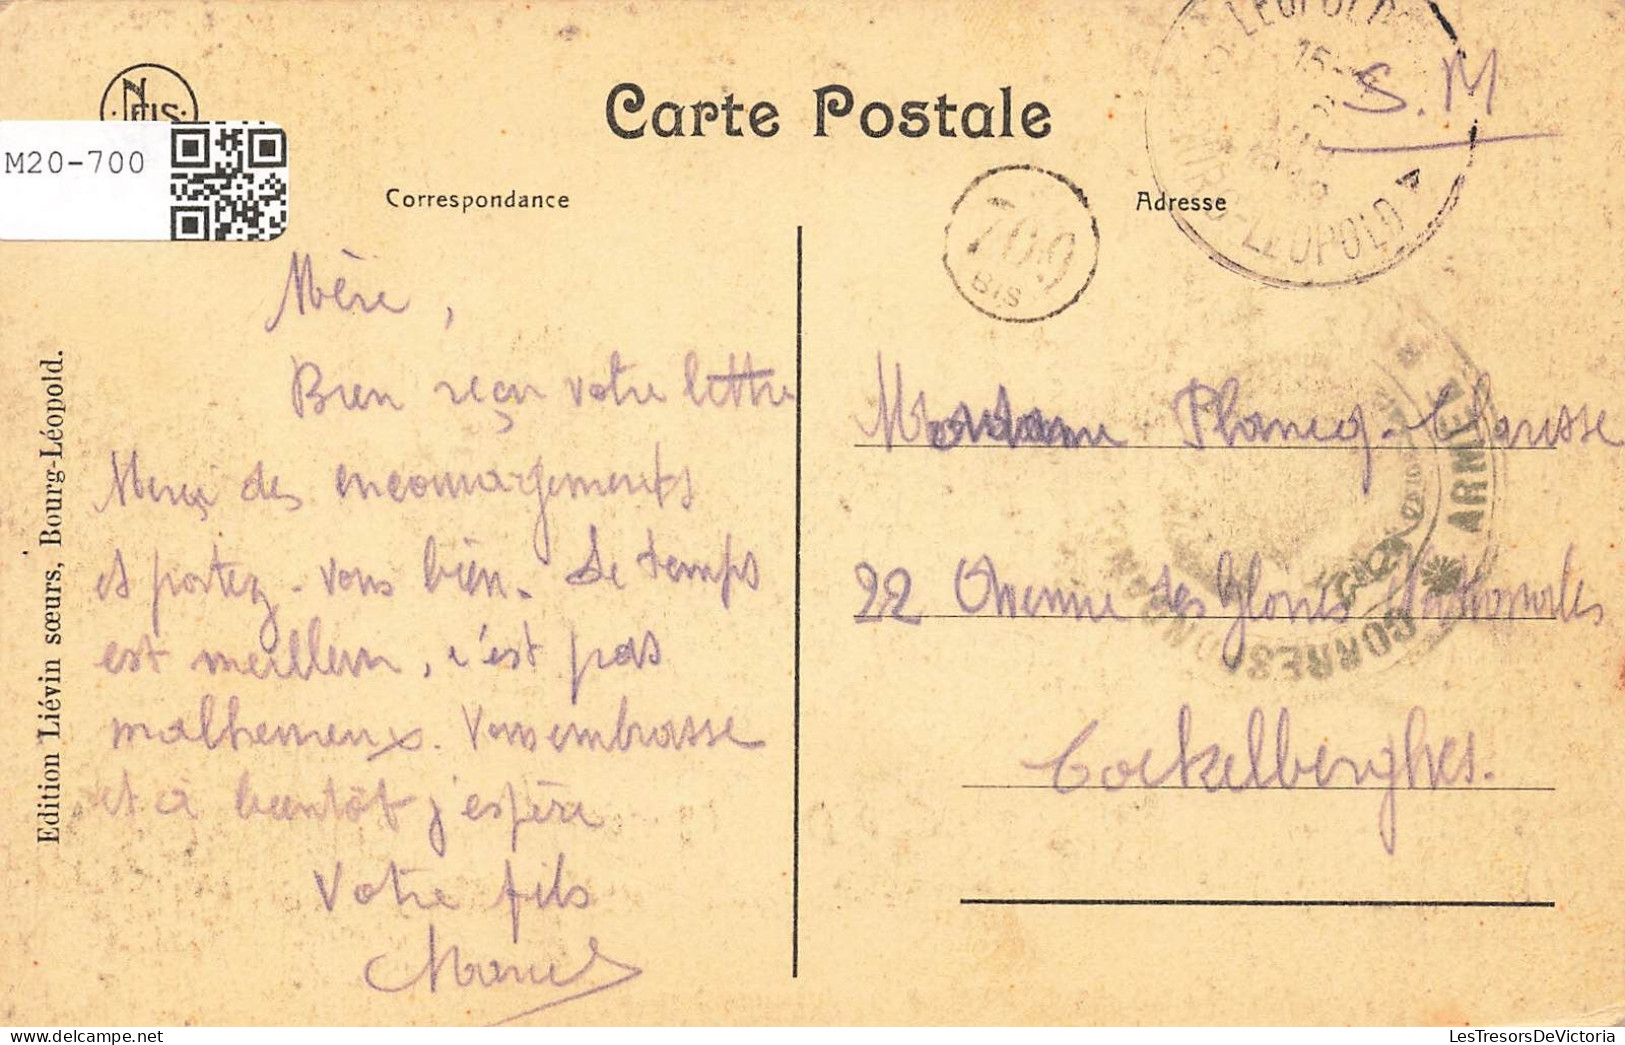 NELS
M20-700
Carte Postale
S. M
LEOPOLD
15-
LEOPOLD
Correspondance
Adresse
709
BIS
Edition Liévin sœurs, Bourg-Léopold.
Mère,
Bien reçu votre lettre
Merci des encouragements
et portez-vous bien. Le temps
est meilleur, c'est pas
malheureux. Vous embrasse
et à bientôt j'espère
Votre fils
Marcel
Madame Plancq-
22 Avenue des Gloires Nationales
Coekelberghes.
ARMÉE
CORRES
LesTresorsDeVictoria